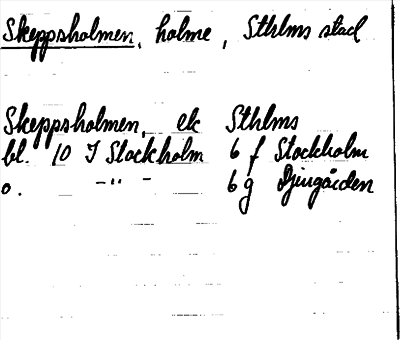 Skeppsholmen, holme, Sthlms stad
Skeppsholmen, ek Sthlms
bl. 10 I Stockholm 6 f Stockholm
o. -"- 6 g Djurgården